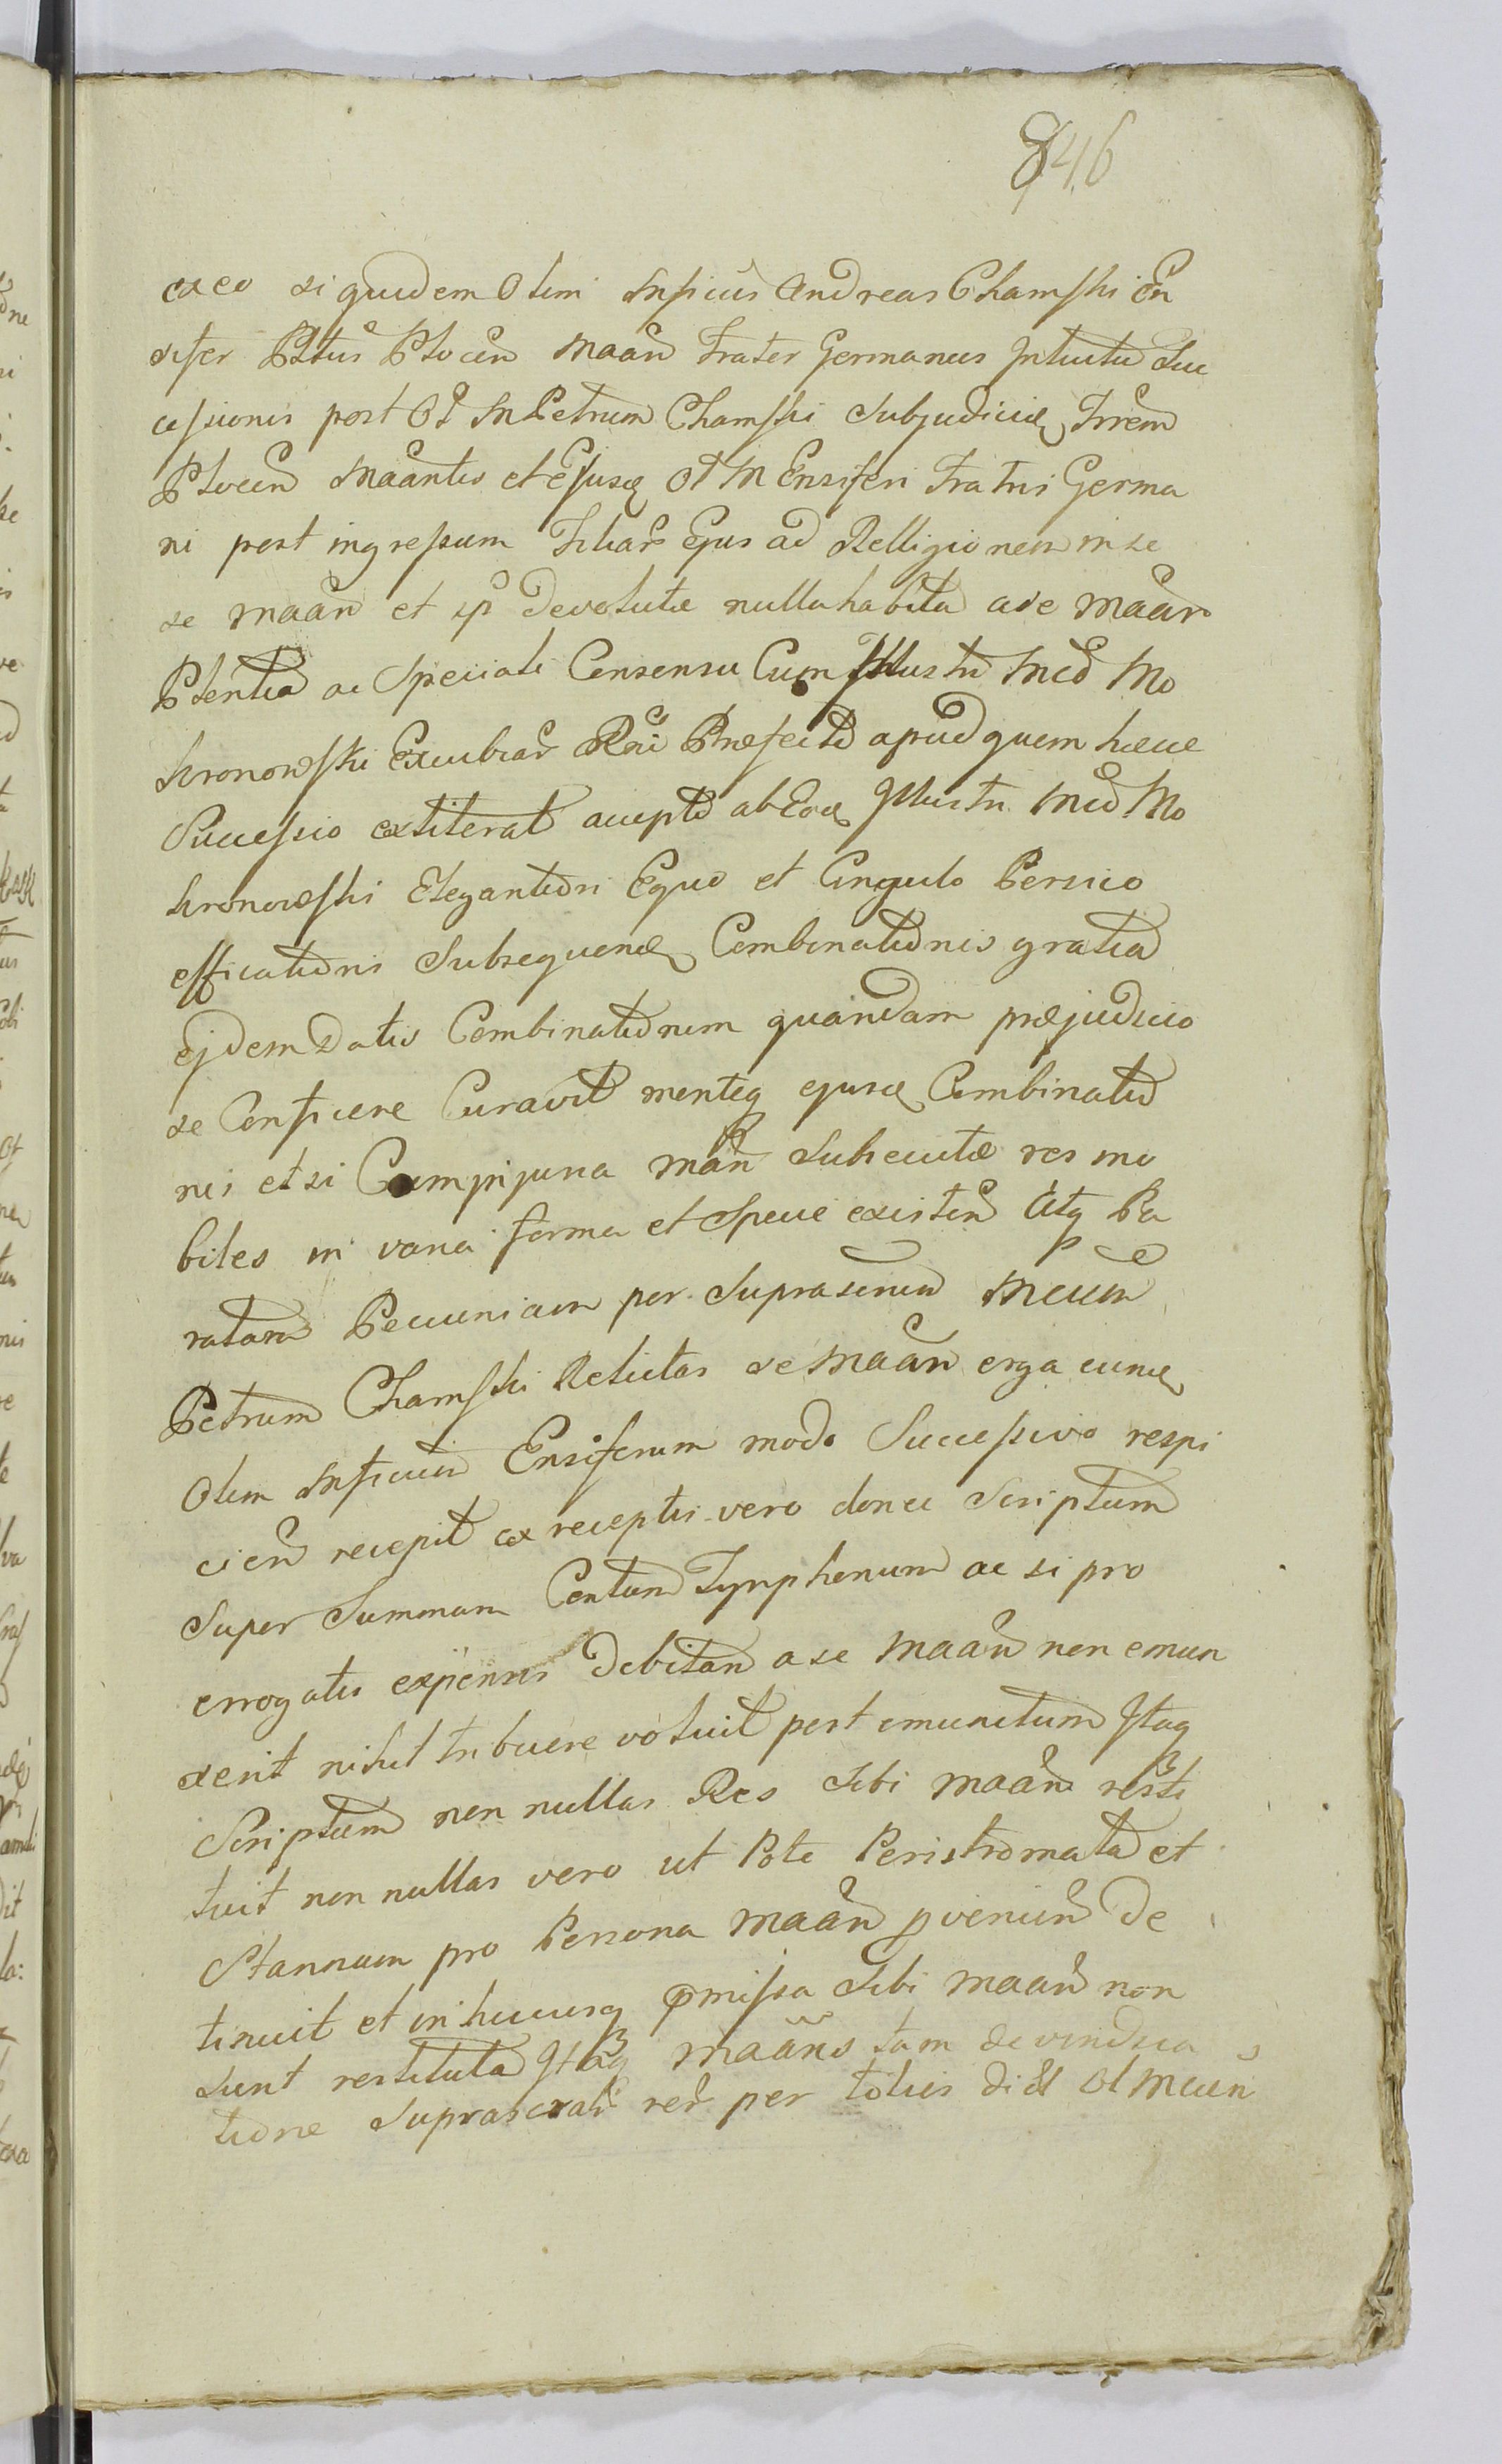 846
ex eo si quidem Olim Mnficus Andreas Chamski En
sifer Pltus Plocen Maan Frater Germanus Intuitu Suc
cessionis post Ol Mn Petrum Chamski Subjudicem Trrem
Plocen Maantis et Ejusq Ol M Ensiferi Fratris Germa
ni post ingressum Filiar Ejus ad Relligionem in se
se Maan et ip devolutæ nulla habita a se Maan
Ptentia ac Speciali Consensu Cum Illustri Mcd Mo
kronowski Excubiar Rni Præfecto apud quem hæcce
Successio extiterat accepto ab Eodq Illustri Mcd Mo
kronowski Elegantiori Equo et Cingulo Persico
efficationis Subsequendq Combinationis gratia
Ejdem Datis Combinationem quandam præjudicio
se Conficere Curavit menteq ejusdq Combinatio
nis etsi Campijuna Maan Subsecutæ res mo
biles in varia forma et Specie existen Atq Pa
ratam Pecuniam per Suprascrium Mcum
Petrum Chamski Relictas se Maan erga eumdq
Olim Mnficum Ensiferum modo Successivo respi
cien recepit ex receptis vero donec Scriptum
Super Summam Centum Tynphonum ac si pro
errogatis expensis debitam a se Maan non emun
xerit nihil tribuere voluit post emunctum Itaq
Scriptum non nullas Res Sibi Maan resti
tuit non nullas vero ut Pote Peristromata et
Stannum pro Persona Maan pvenien de
tinuit et in hucusq pmissa Sibi Maan non
sunt restituta Itaq Maans tam de vindica
tione Suprascrat rer per totius dict Ol Mcun